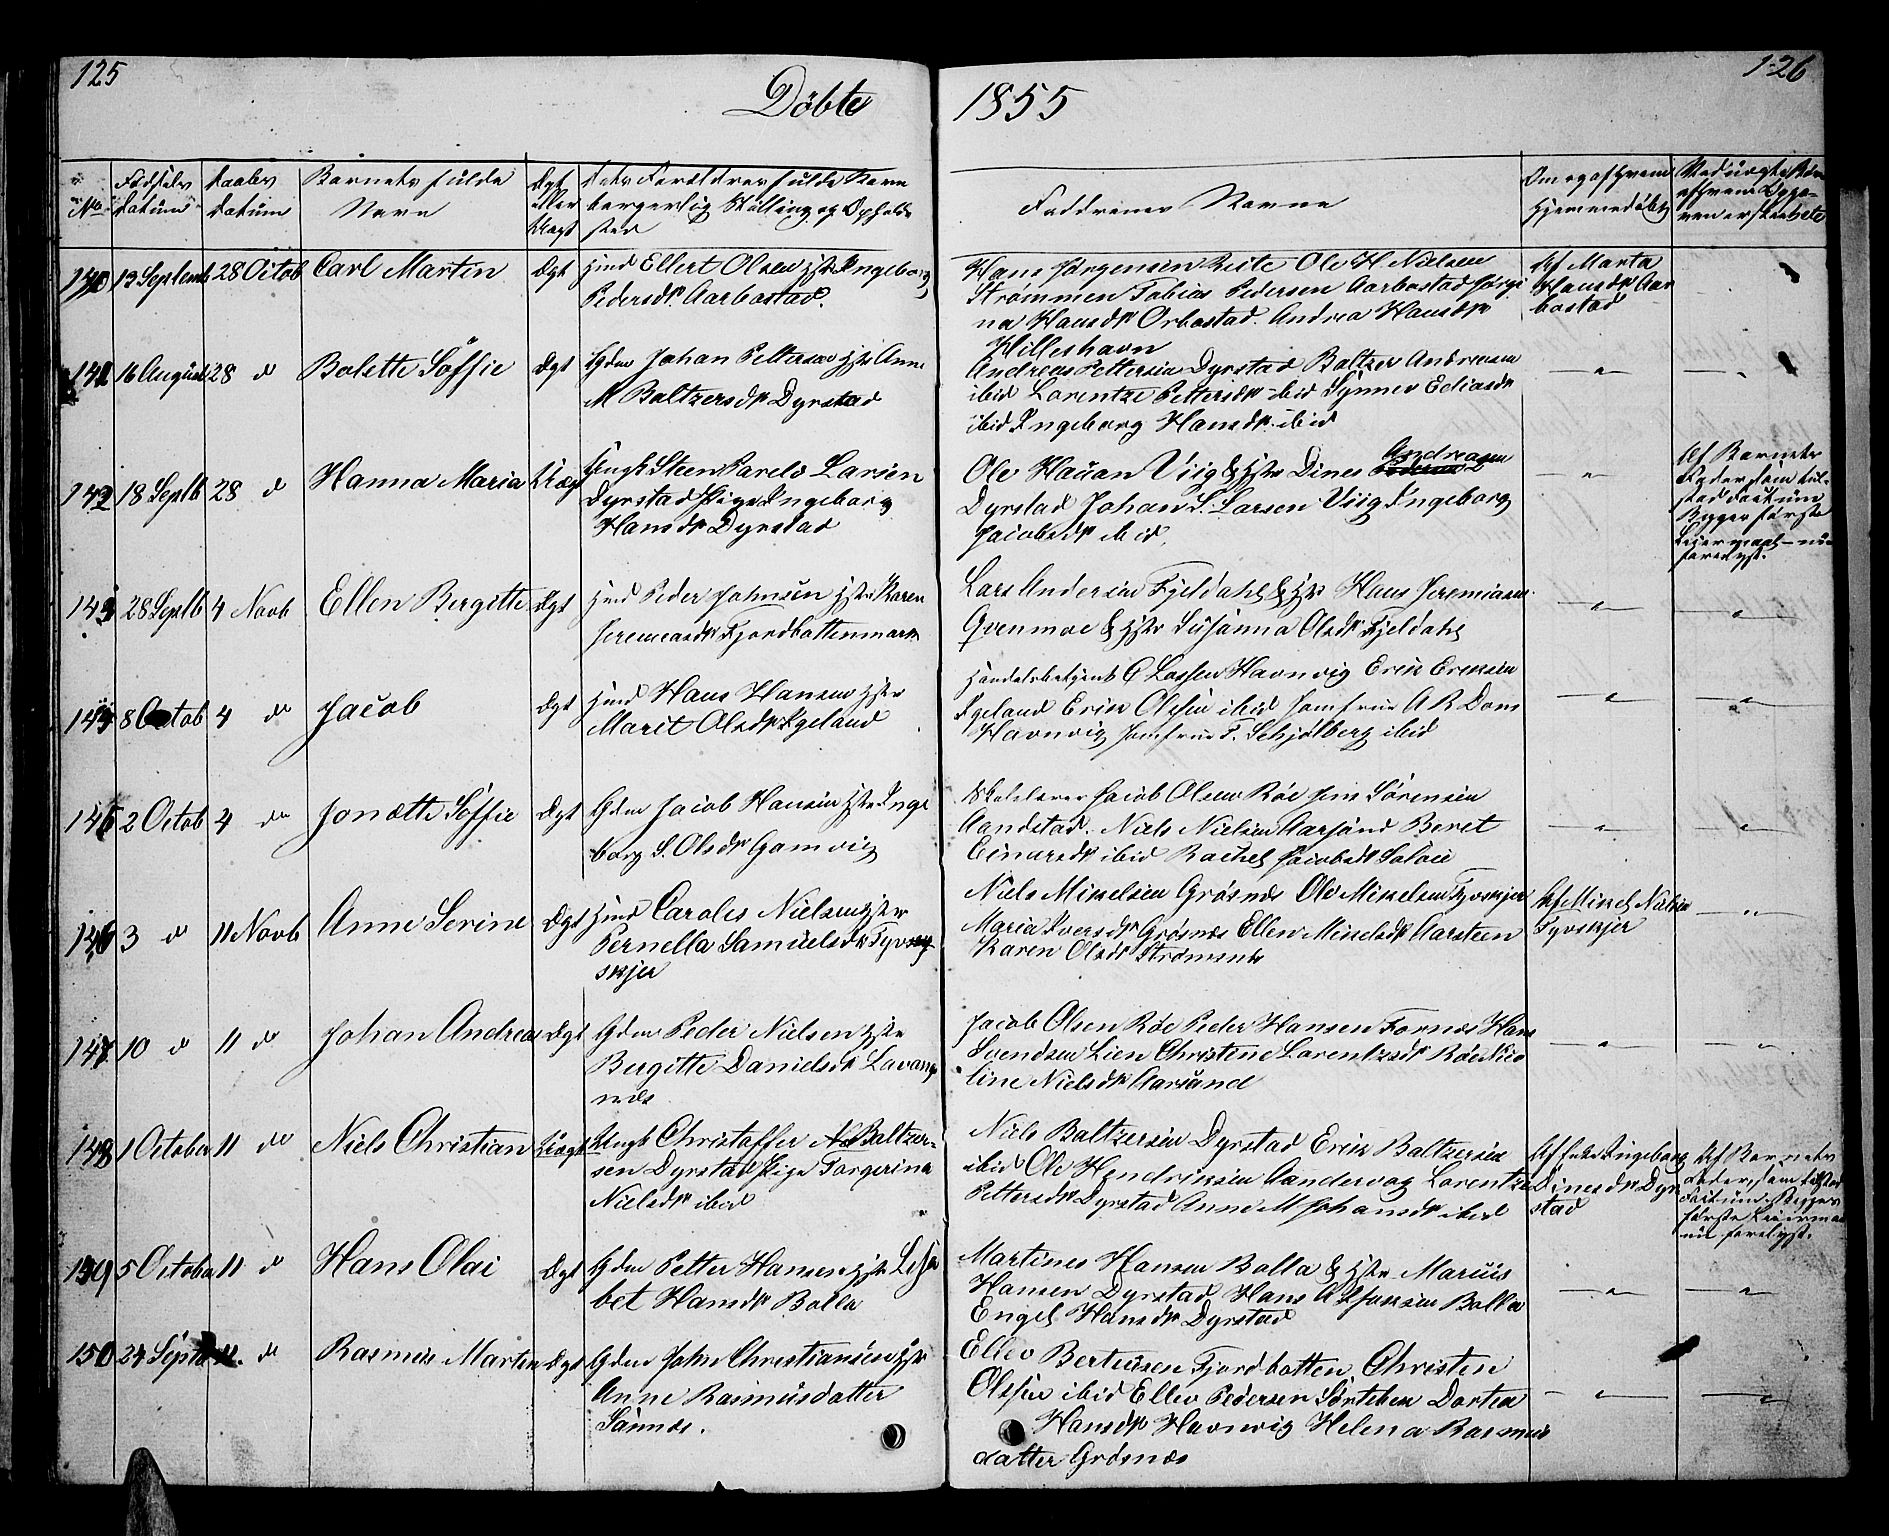 125
126
Döbte 1855
No
Födsels Datum
Daabs Datum
Barnets fulde Navn
Ægt eller Uægt
Dets Forældres fulde Navn borgerlig Stilling og Opholds sted
Faddrenes Navne
Om og af hvem hjemmedöbt
140 13 Septemb 28 Octob Carl Martin Ægt
Hmd Ellert Olsen Hstr Ingeborg
Pedersdr Aarbostad.
Hans Jørgensen Reite Ole H. Nielsen
Strømmen Tobias Pedersen Aarbostad
na Hansdr Orbostad. Andrea Hansdr
Hilleshavn
Af Marta
Hansdr Aar
bostad
141 16 August 28 do Balette Söffie Ægt
Gdm Johan Pettersen Hstr Anne
M Baltzersdr Dyrstad
Andreas Pettersen Dyrstad Baltzer Andreasen
ibid Lorentze Pettersdr ibid Synnev Ediasdr
ibid Ingeborg Hansdr ibid
142 18 Septb 28 do Hanna Maria Uægt
Ungk Steen Larsen
Dyrstad Pige Ingeborg
Hansdr Dyrstad
Andreasen
Ole Hauan Viig & Hstr Dines
Dyrstad Johan S. Larsen Viig Ingeborg
Jacobsdr ibid.
Af Barnets
Fader som til-
stod Factum
Begges første
Leiermaal
143 28 Septb 4 Novb Ellen Bergitte Ægt
Hmd Peder Johnsen Hstr Karen
Jeremiasdr Fjordbottenmark
Lars Andersen Fjeldahl & Hstr Hans Jeremiasen
Grenmoe & Hstr Susanna Olsdr Fjeldahl
8 Octob 4 do Jacob Ægt
Hmd Hans Hansen Hstr
Marit Olsdr Igeland
Handelsbetjent C Lassen Havnvig Erik Eriksen
Igeland Erik Olsen ibid Jomfrue A R Dons
Havnvig Jomfrue F. Schjelberg ibid
2 Octob 4 do Jonætte Söffie Ægt
Gdm Jacob Hansen Hstr Inge
borg S. Olsdr Gamvig
Skolelærer Jacob Olsen Röe Jens Sörensen
Aandstad. Niels Nielsen Aarsund Beret
Einarsdr ibid Rachel Jacobsdr
146 3 do 11 Novb Anne Serine Ægt
Hmd Carolis Nielsen Hstr
Pernella Samuelsdr
skjer
Niels Mikelsen Grösnæs Ole Mikelsen Tyvskjer
Maria Iversdr Grösnæs Ellen Mikelsdr Aarsteen
Karen Olsdr
Af Mikel Nielsen
Tyvskjer
147 10 do 11 do Johan Andreas Ægt
Gdm Peder Nielsen Hstr
Bergitte Danielsdr Lavang
næs
Jacob Olsen Röe Peder Hansen Fornæs Hans
Svendsen Lien Christine Lorentzsdr Röe Nico
line Nielsdr Aarsund
148 1 October 11 do Niels Christian Uægt
Ungk Christoffer Baltzer-
sen Dyrstad Pige Torgerina
Nielsdr ibid
Niels Baltzersen Dyrstad Erik Baltzersen
ibid Ole Hendriksen Sandevog Lorentze
Pettersdr Dyrstad Anne M Johansdr ibid
Af Enke Ingeborg
Dinesdr Dyr
stad
Af Barnets
Fader som tilstod
Factum. Begges
første Leierm
149 5 October 11 do Hans Olai Ægt
Gdm Petter Hansen Hstr Lisa
bet Hansdr Balla
Martines Hansen Balla & Hstr Marius
Hansen Dyrstad Hans Balla
Engel Hansdr Dyrstad
150 24 Septb 11. do Rasmus Martin Ægt
Gdm John Christiansen Hstr
Anne Rasmusdatter
Sannæs.
Ellev Berteusen Fjordbotten, Christen
Olsen ibid Ellev Pedersen Dortea
Hansdr Havnvig Helena Rasmus
datter Grösnæs